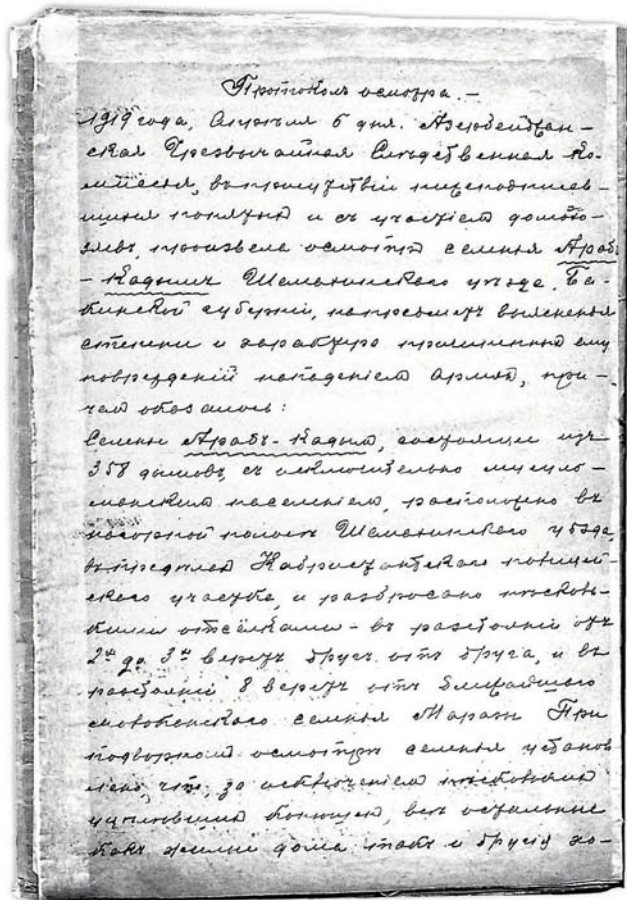 Протоколъ осмотра. –
1919 года, Апрѣля 6 дня. Азербейджан–
ская Чрезвычайная Слѣдственная Ко–
миссія, въ присутствіи нижеподписав–
шихся понятыхъ и съ участіемъ
произвела осмотръ селенія Арабъ
– Кадымъ Шемахинскаго уѣзда, Ба–
кинской губерніи, на предметъ выясненія
степени и характера причиненныхъ ему
поврежденій нападеніемъ армянъ, при–
чемъ оказалось:
Селеніе Арабъ–Кадымъ, состоящее изъ
358 домовъ, съ исключительно мусуль–
манскимъ населеніемъ, расположено въ
нагорной полосѣ Шемахинскаго уѣзда,
въ предѣлахъ Кабристанскаго полицей–
скаго участка, и разбросано нѣсколь–
кими отсёлками – въ разстояніи отъ
2хъ до 3хъ верстъ другъ отъ друга, и въ
разстояніи 8 верстъ отъ ближайшаго
молоканскаго селенія Маразы При
подворномъ осмотрѣ селенія установ
лено, что, за исключеніемъ нѣсколькихъ
уцѣлѣвшихъ всѣ остальные
какъ жилые дома такъ и другія хо–